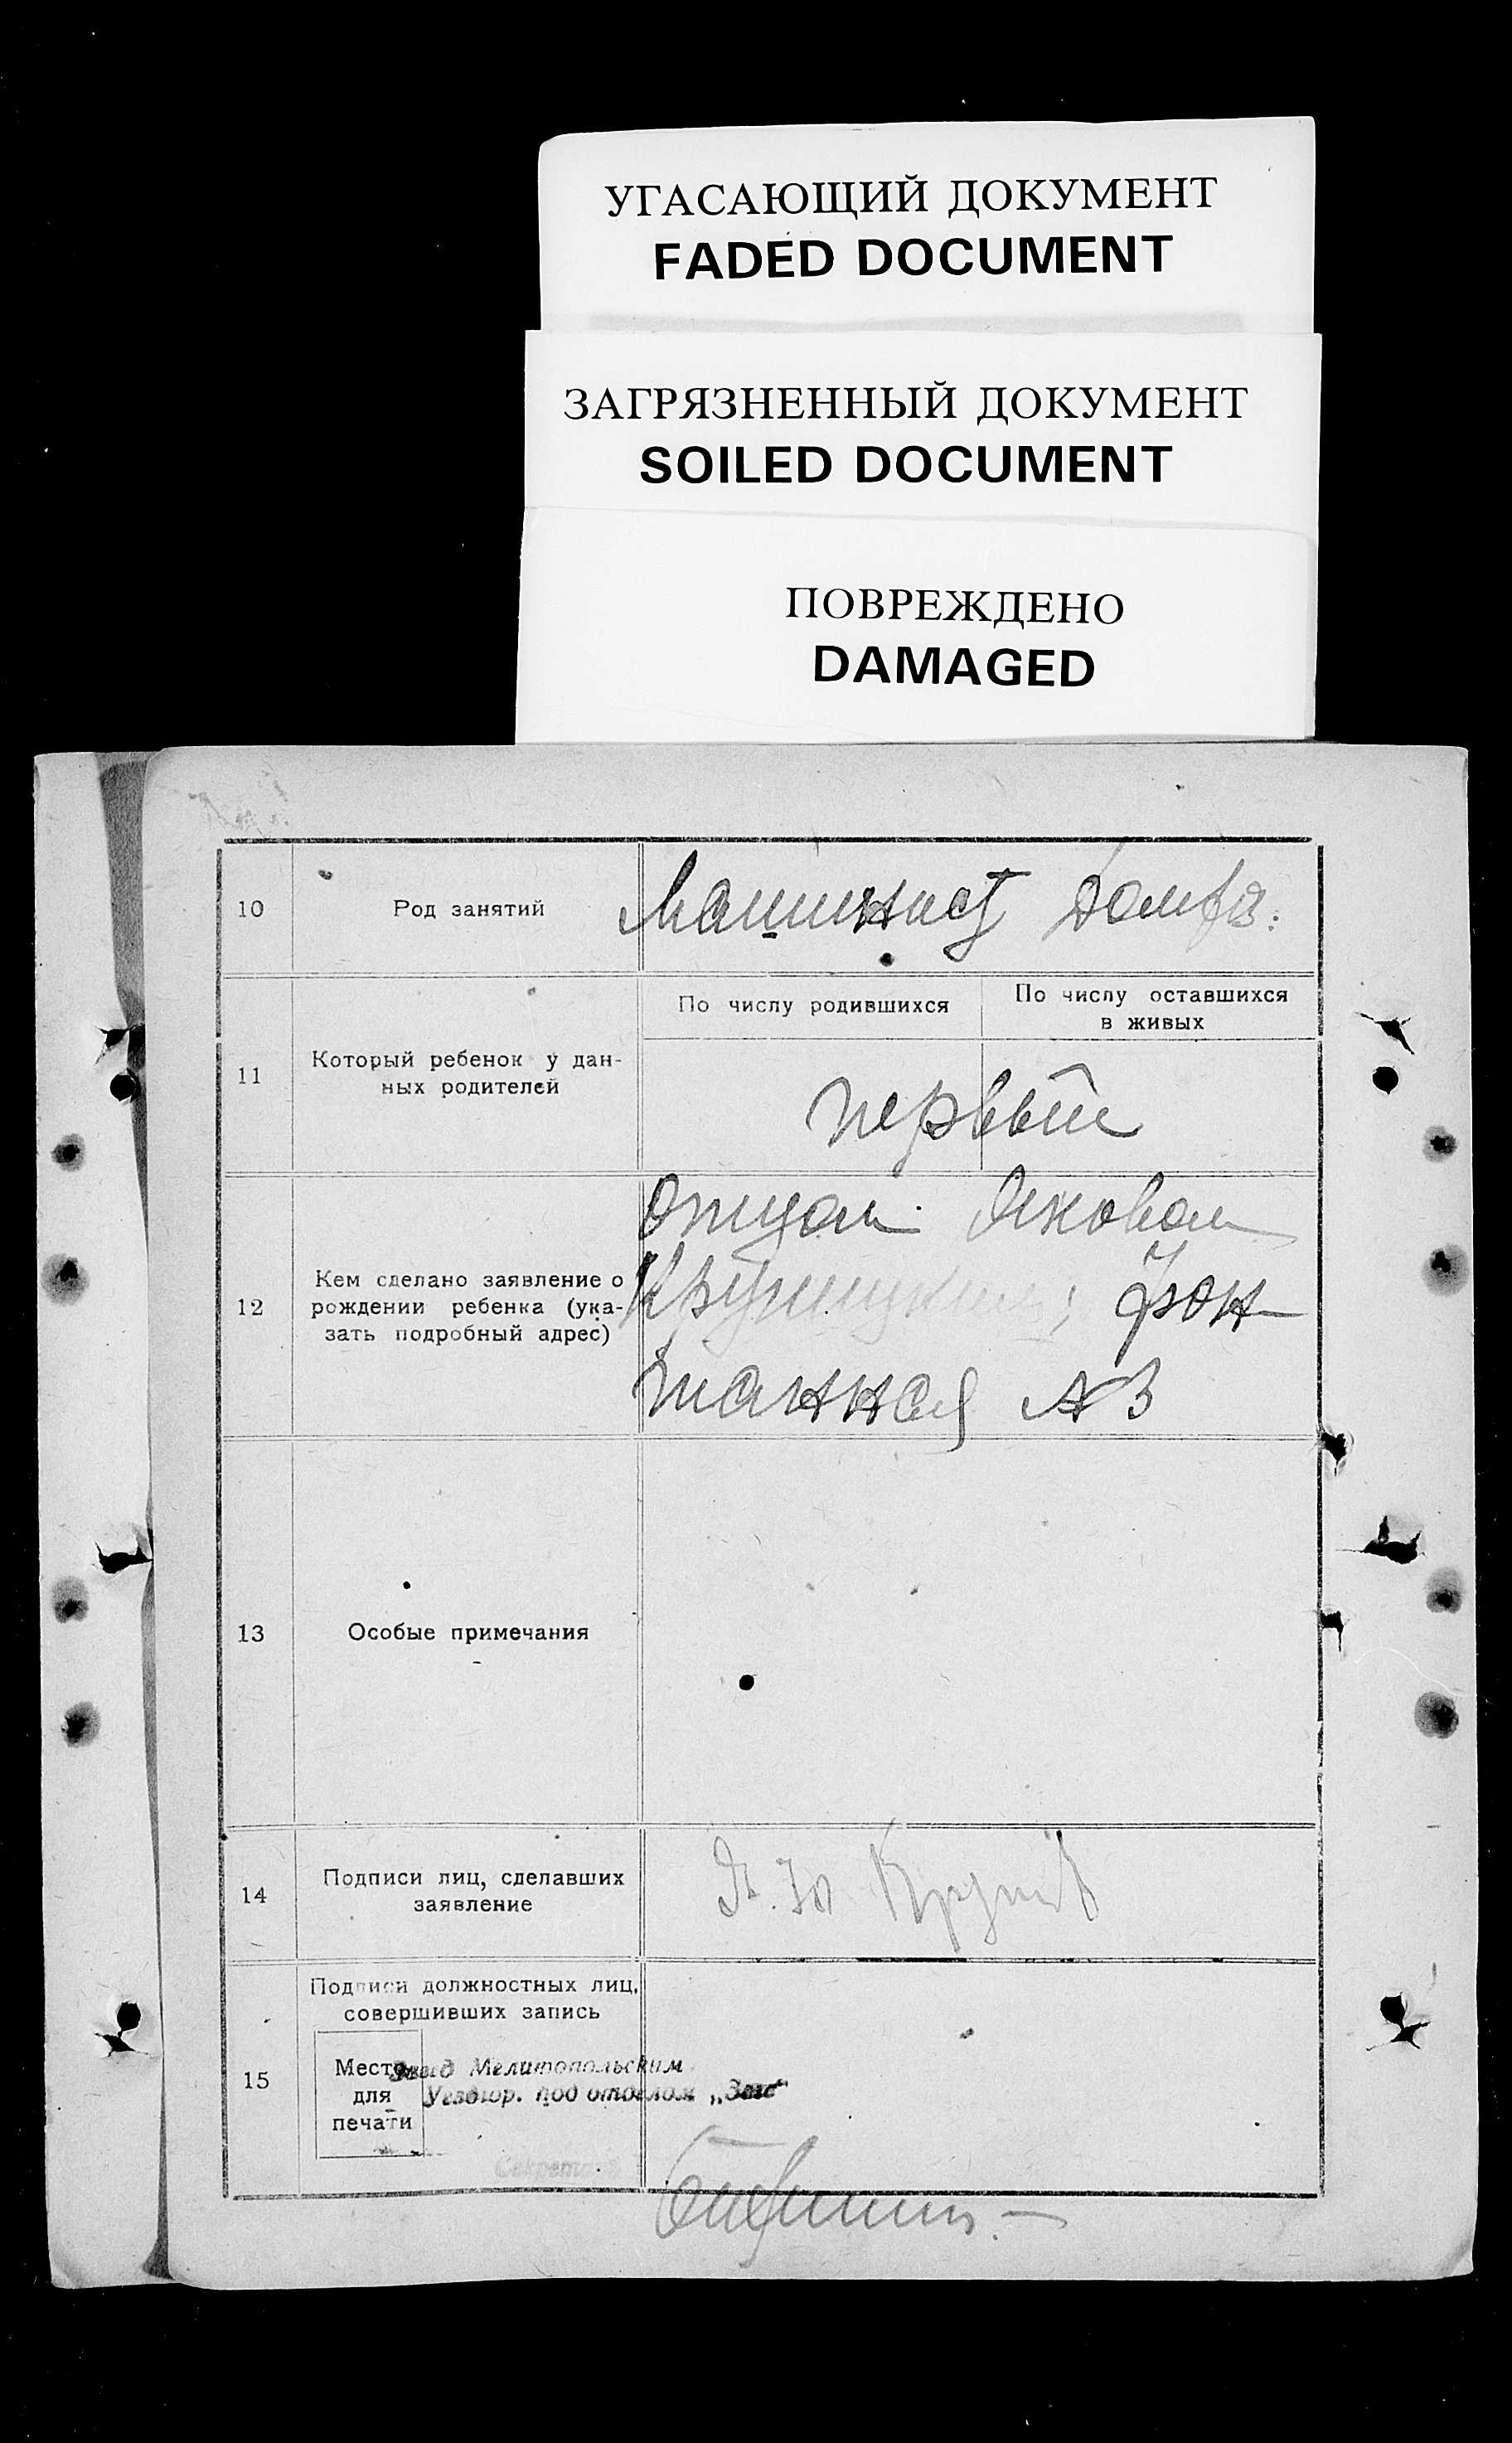 УГАСАЮЩИЙ ДОКУМЕНТ
FADED DOCUMENT
ЗАГРЯЗНЕННЫЙ ДОКУМЕНТ
SOILED DOCUMENT
ПОВРЕЖДЕНО
DAMAGED
10
Род занятий
Машинист
11
Который ребенок у дан-
ных родителей
По числу родившихся
По числу оставшихся
в живых
первый
12
Кем сделано заявление о
рождении ребенка (ука-
зать подробный адрес)
отцом Яковом
Фон-
танная № 3
13
Особые примечания
14
Подписи лиц, сделавших
заявление
15
Подписи должностных лиц,
совершивших запись
Место
для
печати
Мелитопольским
под отделом „Загс“
Секретарь